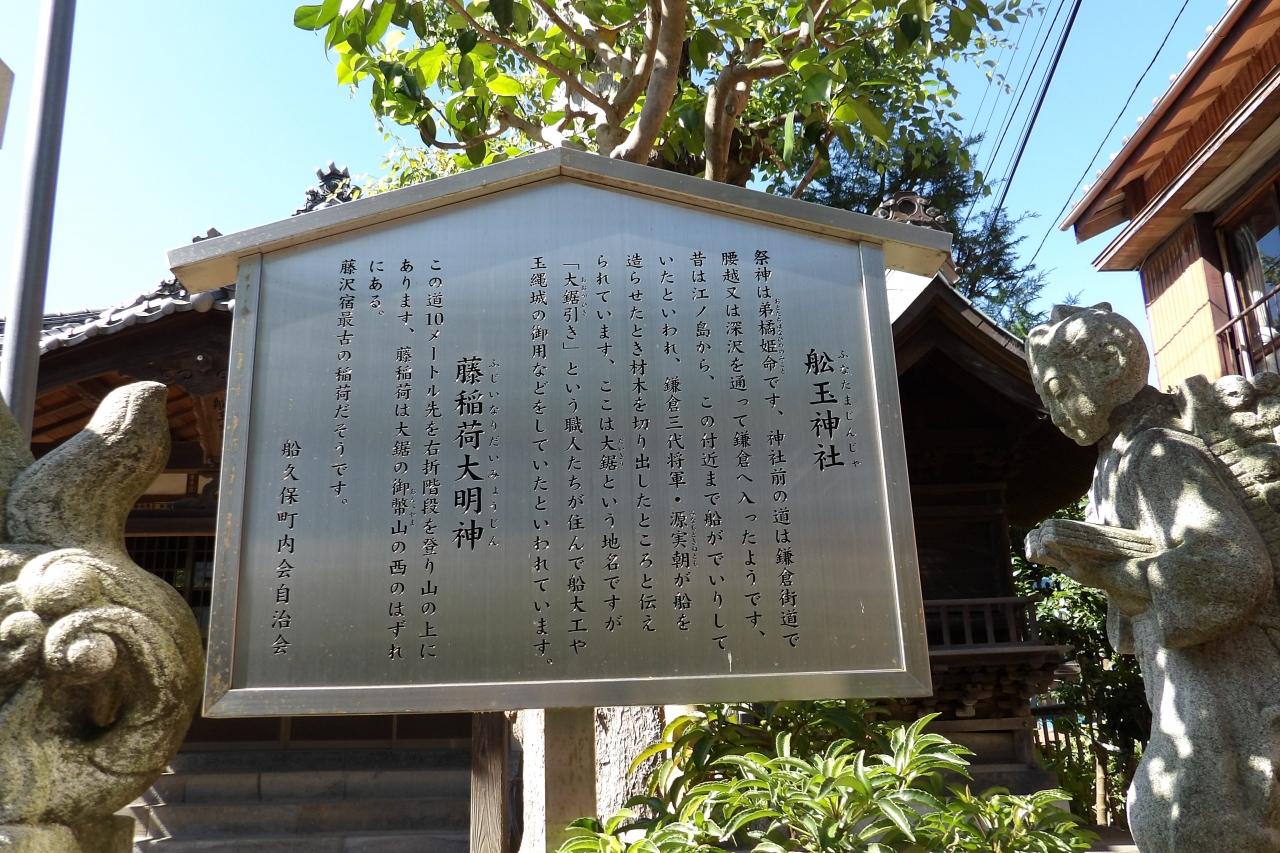 舩玉神社
祭神は弟橘姫命です、神社前の道は鎌倉街道で
腰越又は深沢を通って鎌倉へ入ったようです、
昔は江ノ島から、この付近まで船がでいりして
いたといわれ、鎌倉三代将軍・源実朝が船を
造らせたとき材木を切り出したところと伝え
られています、ここは大鋸という地名ですが
「大鋸引き」という職人たちが住んで船大工や
玉縄城の御用などをしていたといわれています。
藤稲荷大明神
この道10メートル先を右折階段を登り山の上に
あります、藤稲荷は大鋸の御幣山の西のはずれ
にある。
藤沢宿最古の稲荷だそうです。
船久保町内会自治会